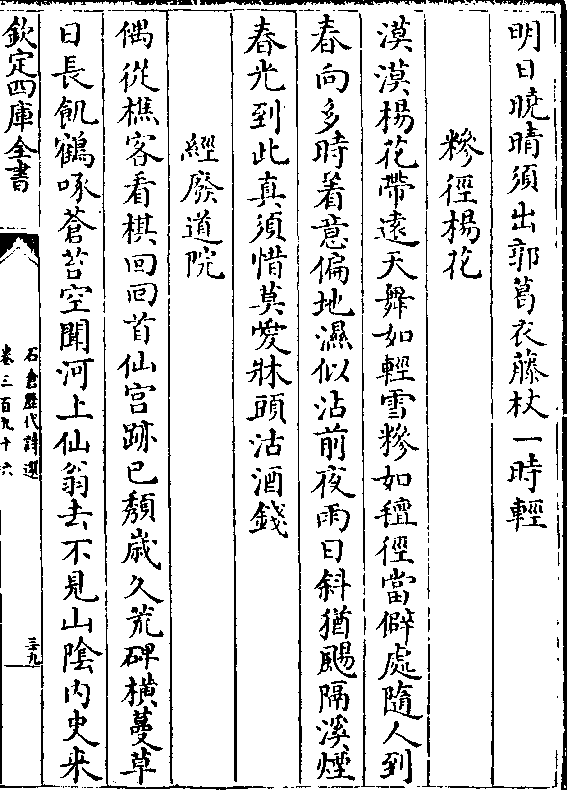 明日曉晴須出郭葛衣藤杖一時輕
糝徑楊花
漠漠楊花帶遠天舞如輕雪糝如氊徑當僻處隨人到
春向多時着意偏地濕似沾前夜雨日斜猶颺隔溪煙
春光到此真須惜莫愛牀頭沽酒錢
經廢道院
偶從樵客看棋回回首仙宫跡已頽歲久荒碑橫蔓草
日長飢鶴啄蒼苔空聞河上仙翁去不見山隂内史来
欽定四庫全書
石倉歴代詩選
卷三百九十六
三九